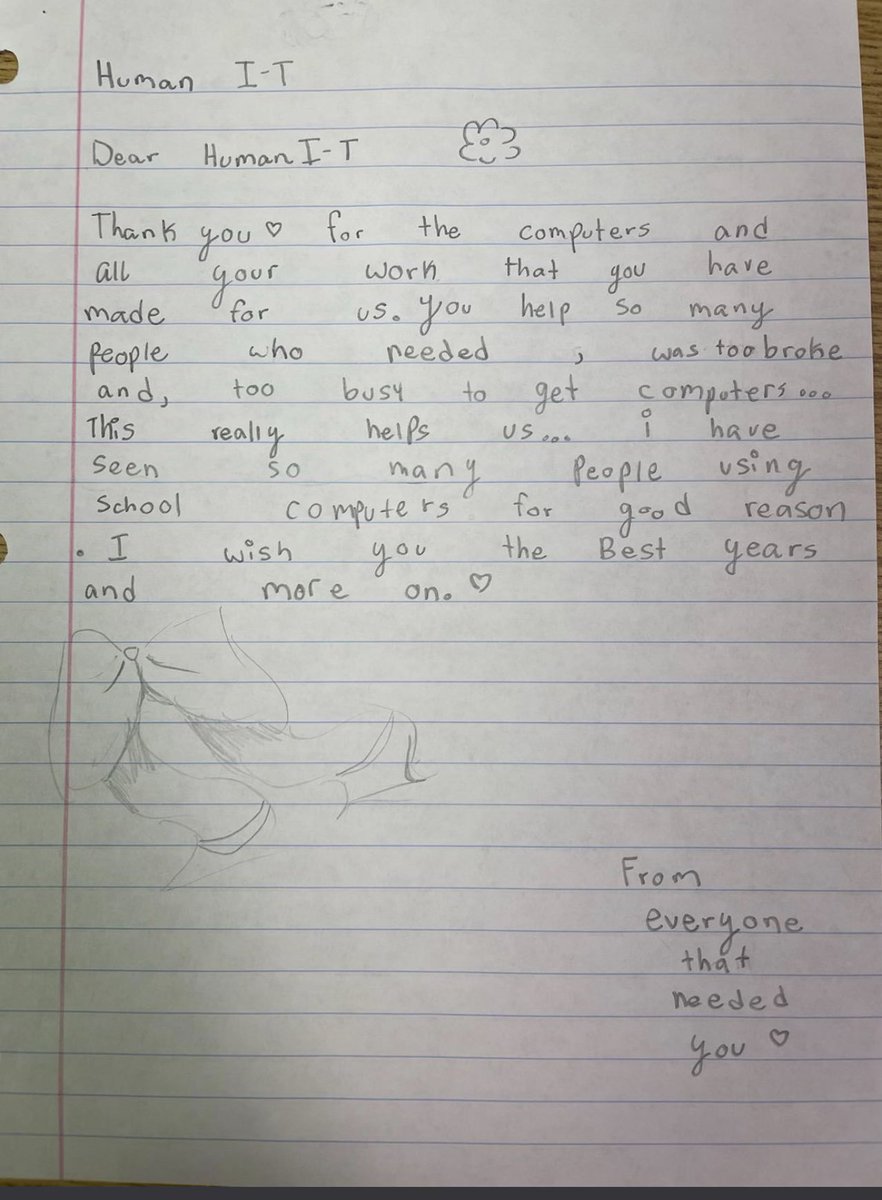 Human I-T
Dear Human I-T
Thank you ♡ for the computers and
all your work that you have
made for us. you help so many
people who needed , was too broke
and, too busy to get computers...
This really helps us... i have
seen so many People using
School computers for good reason
. I wish you the Best years
and more on. ♡
From
everyone
that
needed
you ♡